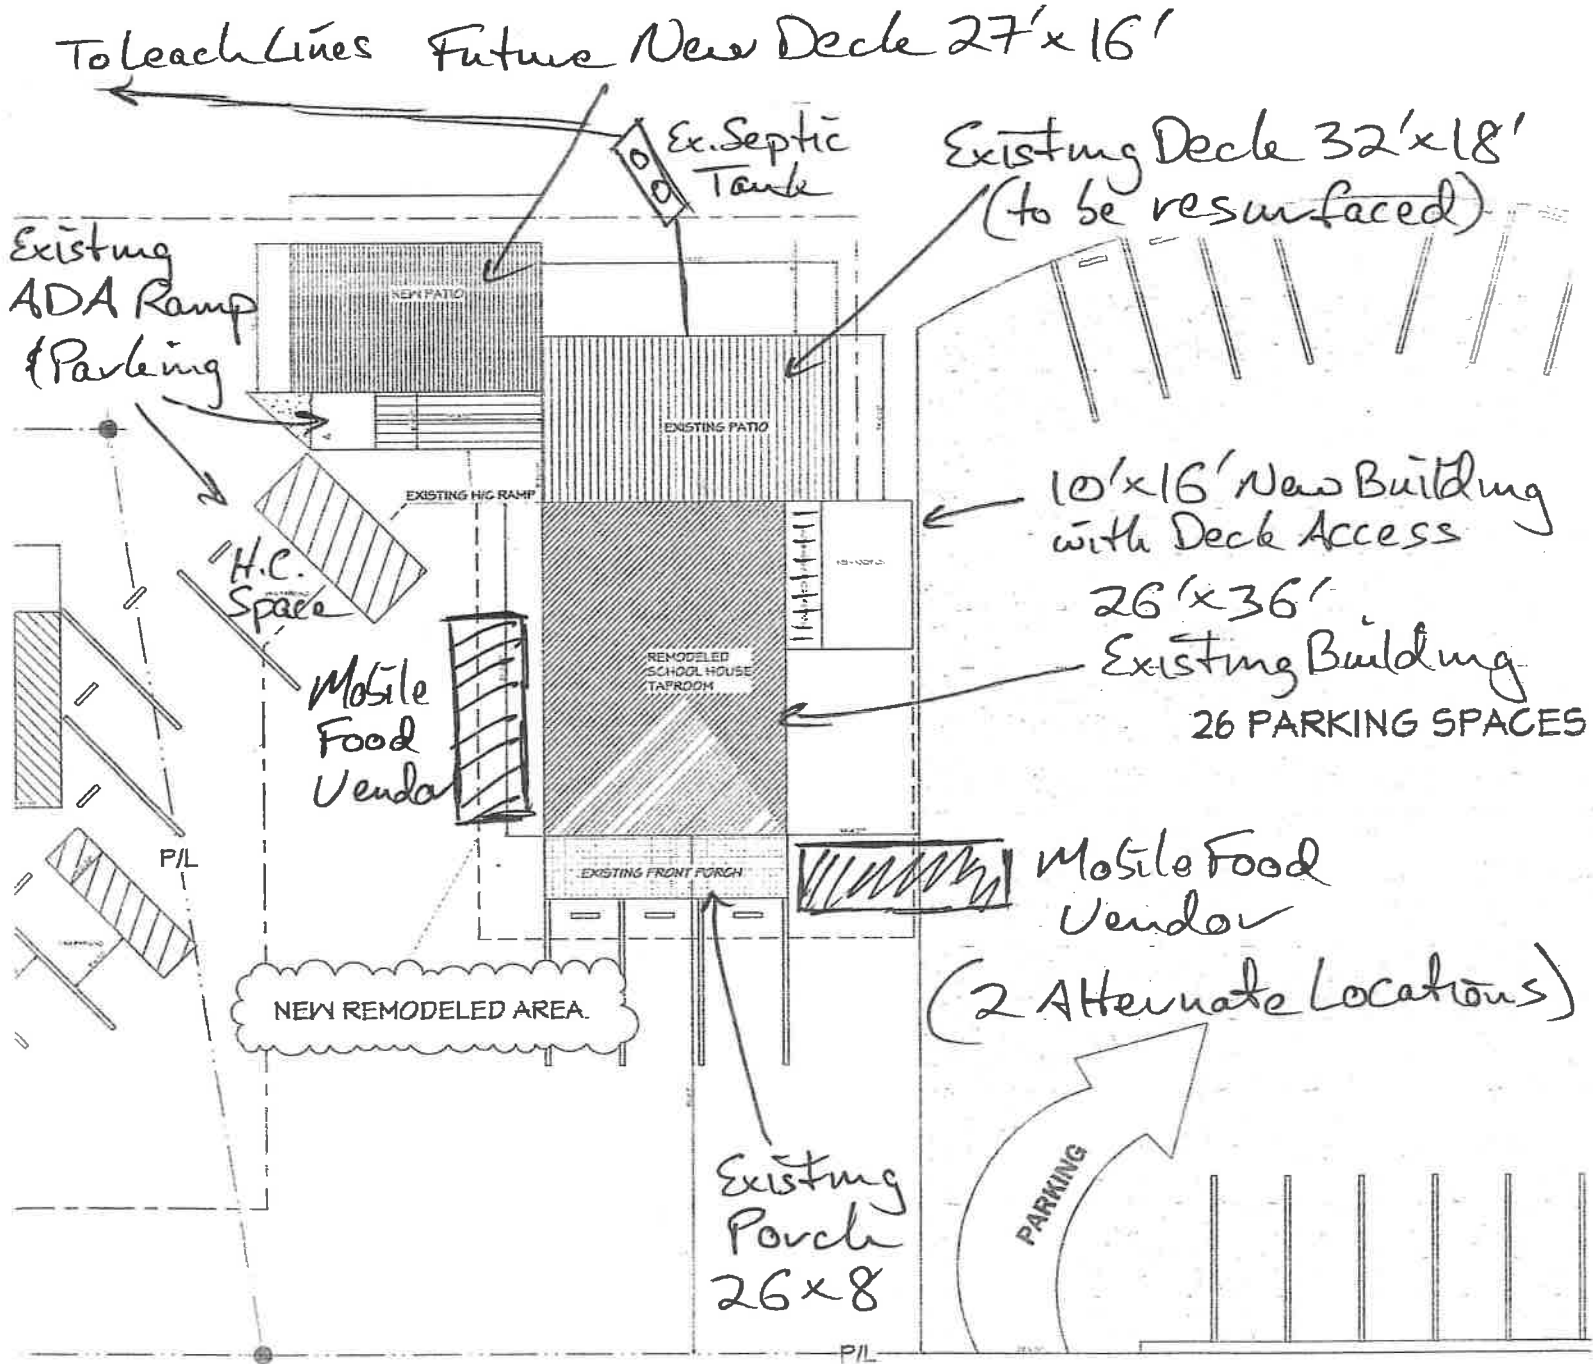 To Leach Lines Future New Deck 27' x 16'
Ex. Septic
Tank
Existing Deck 32' x 18'
(to be resurfaced)
Existing
ADA Ramp
& Parking
NEW PATIO
EXISTING PATIO
EXISTING H/C RAMP
10' x 16' New Building
with Deck Access
H.C.
Space
26' x 36'
Existing Building
26 PARKING SPACES
REMODELED
SCHOOL HOUSE
TAPROOM
Mobile
Food
Vendor
P/L
EXISTING FRONT PORCH
Mobile Food
Vendor
(2 Alternate Locations)
NEW REMODELED AREA.
PARKING
Existing
Porch
26 x 8
P/L